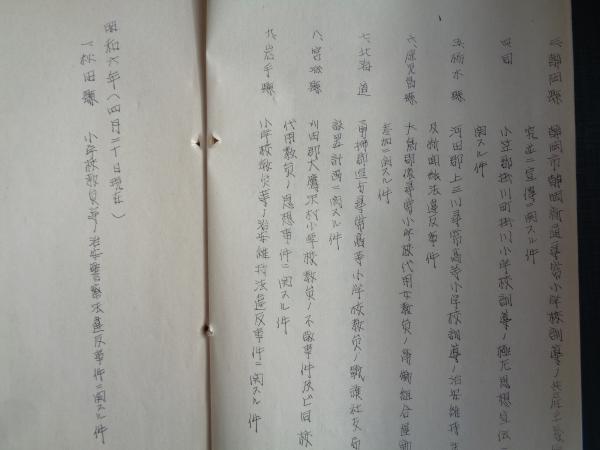 三、静岡縣 静岡市静岡新通尋常小学校訓導ノ共産主義
宣伝ニ関スル件
四、同 小笠郡掛川町掛川小学校訓導ノ極左思想宣伝ニ
関スル件
五、栃木縣 河内郡上三川尋常高等小学校訓導ノ治安維持法
及新聞紙法違反事件
六、鹿児島縣 大島郡 尋常小学校代用女教員ノ労働組合運動
参加ニ関スル件
七、北海道 尋常高等小学校教員ノ戦旗社支局
設置計画ニ関スル件
八、宮城縣 刈田郡大鷹沢村小学校教員ノ不敬事件及ビ同校
代用教員ノ思想事件ニ関スル件
九、岩手縣 小学校教員等ノ治安維持法違反事件ニ関スル件
昭和六年(四月三十日現在)
一、秋田縣 小学校教員等ノ治安警察法違反事件ニ関スル件